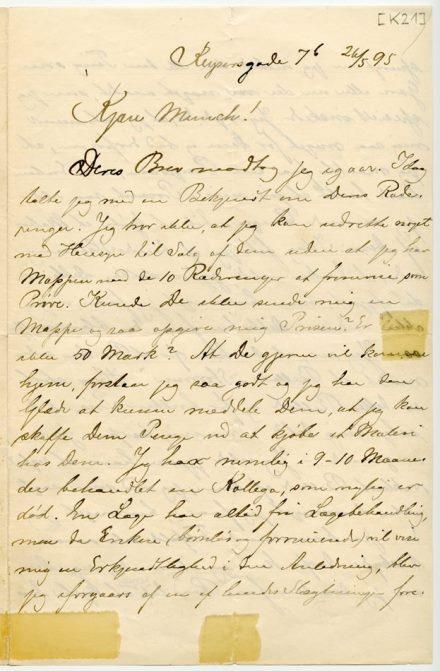 [K21]
Keysersgade 7b 24/5 95
Kjære Munch!
Deres Brev modtog jeg igaar. Idag
talte jeg med en Bekjendt om Deres Rade
ringer. Jeg tror ikke, at jeg kan udrette noget
med Hensyn til Salg af dem uden at jeg har
Mappen med de 10 Raderinger at fremvise, som
Prøve. Kunde De ikke sende mig en
Mappe og saa opgive mig Prisen? Er
ikke 50 Mark? At De gjerne vil komme
hjem, forstaar jeg saa godt og jeg har den
Glæde at kunne meddele Dem, at jeg kan
skaffe Dem Penge ved at kjøbe et Maleri
hos Dem. Jeg har nemlig i 9-10 Maane
der behandlet en Kollega, som nylig er
død. En Læge har altid fri Lægebehandling,
men da Enken (barnløs og formuende) vil vise
mig en Erkjendtlighed i den Anledning, blev
jeg iforgaars af en af hendes Slægtninge fore-